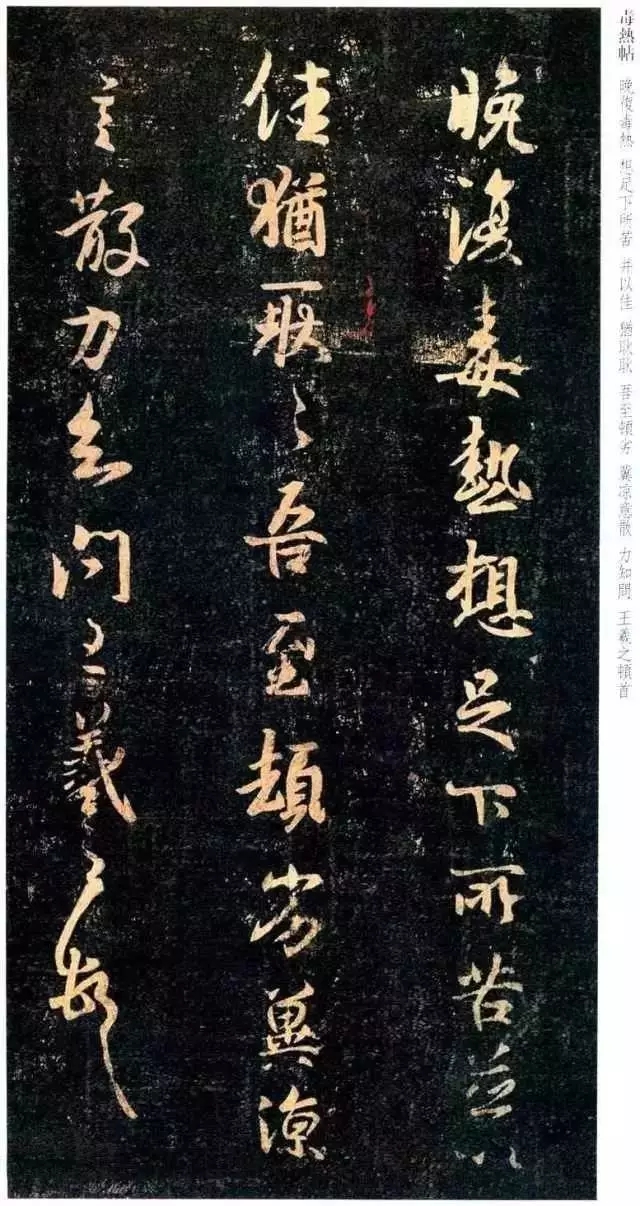 毒熱帖 晚復毒熱 想足下所苦 并以佳 猶耿耿 吾至頓劣 冀凉意散 力知問 王羲之頓首
晚復毒熱想足下所苦並以
佳猶耿〻吾至頓劣冀涼
意散力知問王羲之頓首